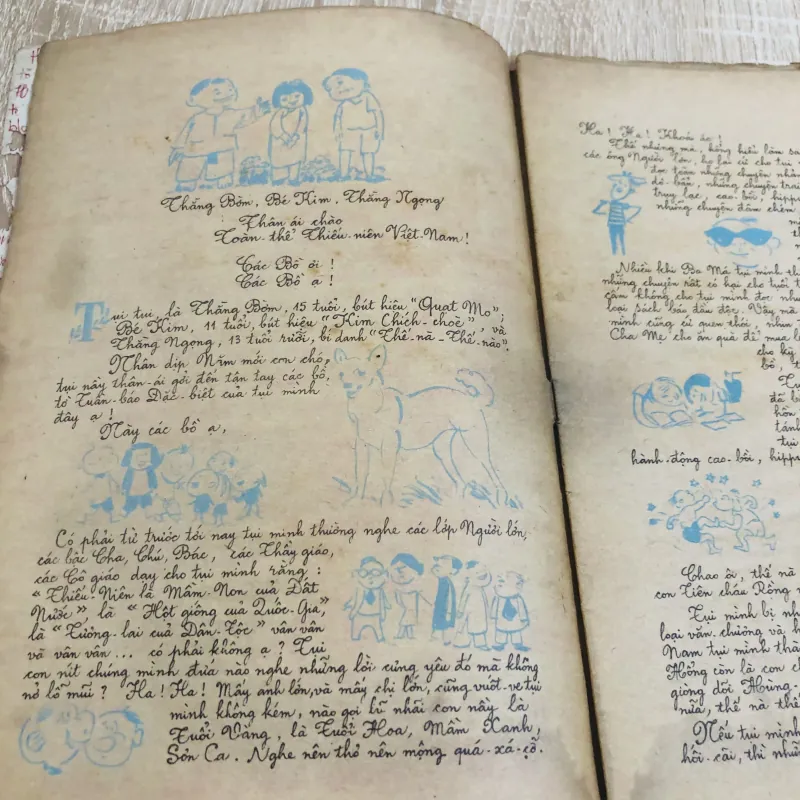 Thằng Bờm, Bé Kim, Thằng Ngọng
Thân ái chào
Toàn-thể Thiếu-niên Việt-Nam!
Các Bồ ơi!
Các Bồ ạ!
Tụi tui là Thằng Bờm, 15 tuổi, bút hiệu "Quạt Mo";
Bé Kim, 11 tuổi, bút hiệu "Kim Chích-choè", và
Thằng Ngọng, 13 tuổi rưỡi, bí danh "Thế-nà-Thế-nào".
Nhân dịp Năm mới con chó,
tụi này thân-ái gởi đến tận tay các bồ,
tờ Tuần-báo Đặc-biệt của tụi mình
đây ạ!
Này các bồ ạ,
Có phải từ trước tới nay tụi mình thường nghe các lớp Người lớn,
các bậc Cha, Chú, Bác, các Thầy giáo,
các Cô giáo dạy cho tụi mình rằng:
"Thiếu-Niên là Mầm-Non của Đất
Nước" là "Hột giống của Quốc-Gia",
là "Tương-lai của Dân-Tộc" vân vân
và vân vân... có phải không ạ? Tụi
con nít chúng mình đứa nào nghe những lời cưng yêu đó mà không
nở lỗ mũi? Ha! Ha! Mấy anh lớn, và mấy chị lớn, cũng vuốt-ve tụi
mình không kém, nào gọi lũ nhãi con này là
Tuổi Vàng, là Tuổi Hoa, Mầm Xanh,
Sơn Ca. Nghe nên thơ nên mộng quá-xá-cỡ.
Ha! Ha! Khoái ác!
Thế nhưng mà, hổng hiểu làm sao
các ông Người lớn, họ lại cứ cho tụi
đọc toàn những chuyện nhảm
những chuyện
trụy lạc, cao-bồi, hippy
những chuyện đâm chém
Nhiều khi Ba Má tụi mình
những chuyện rất có hại cho tuổi
cấm không cho tụi mình đọc
loại sách báo đầu độc. Vậy mà
mình cũng cứ quen thói, như
Cha Mẹ cho ăn quà để mua
cho kỳ
bồ,
Tụi
đã bị
hồn
tánh
tụi
hành-động cao-bồi, hippy
Chao ôi, thế nà
con Tiên cháu Rồng
Tụi mình bị
loại văn-chương và
Nam tụi mình
Hồng còn là con
giòng dõi Hùng-
nữa, thế nà thế
Nếu tụi mình
hồi-cải, thì